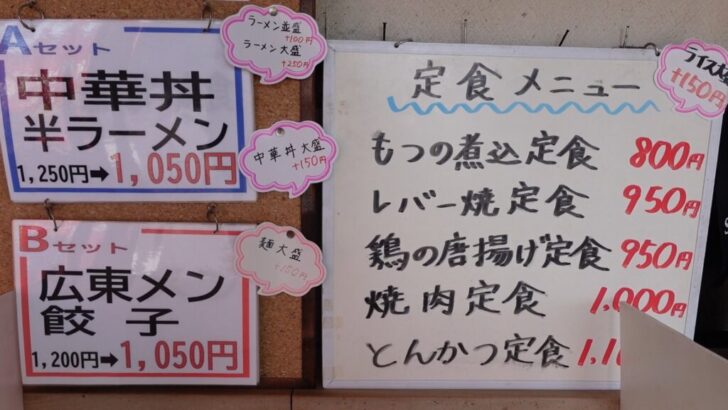 Aセット
中華丼
半ラーメン
1,250円→1,050円
ラーメン並盛
+100円
ラーメン大盛
+250円
中華丼大盛
+150円
Bセット
広東メン
餃子
1,200円→1,050円
麺大盛
+150円
定食メニュー
ライス大
+150円
もつの煮込定食 800円
レバー焼定食 950円
鶏の唐揚げ定食 950円
焼肉定食 1,000円
とんかつ定食